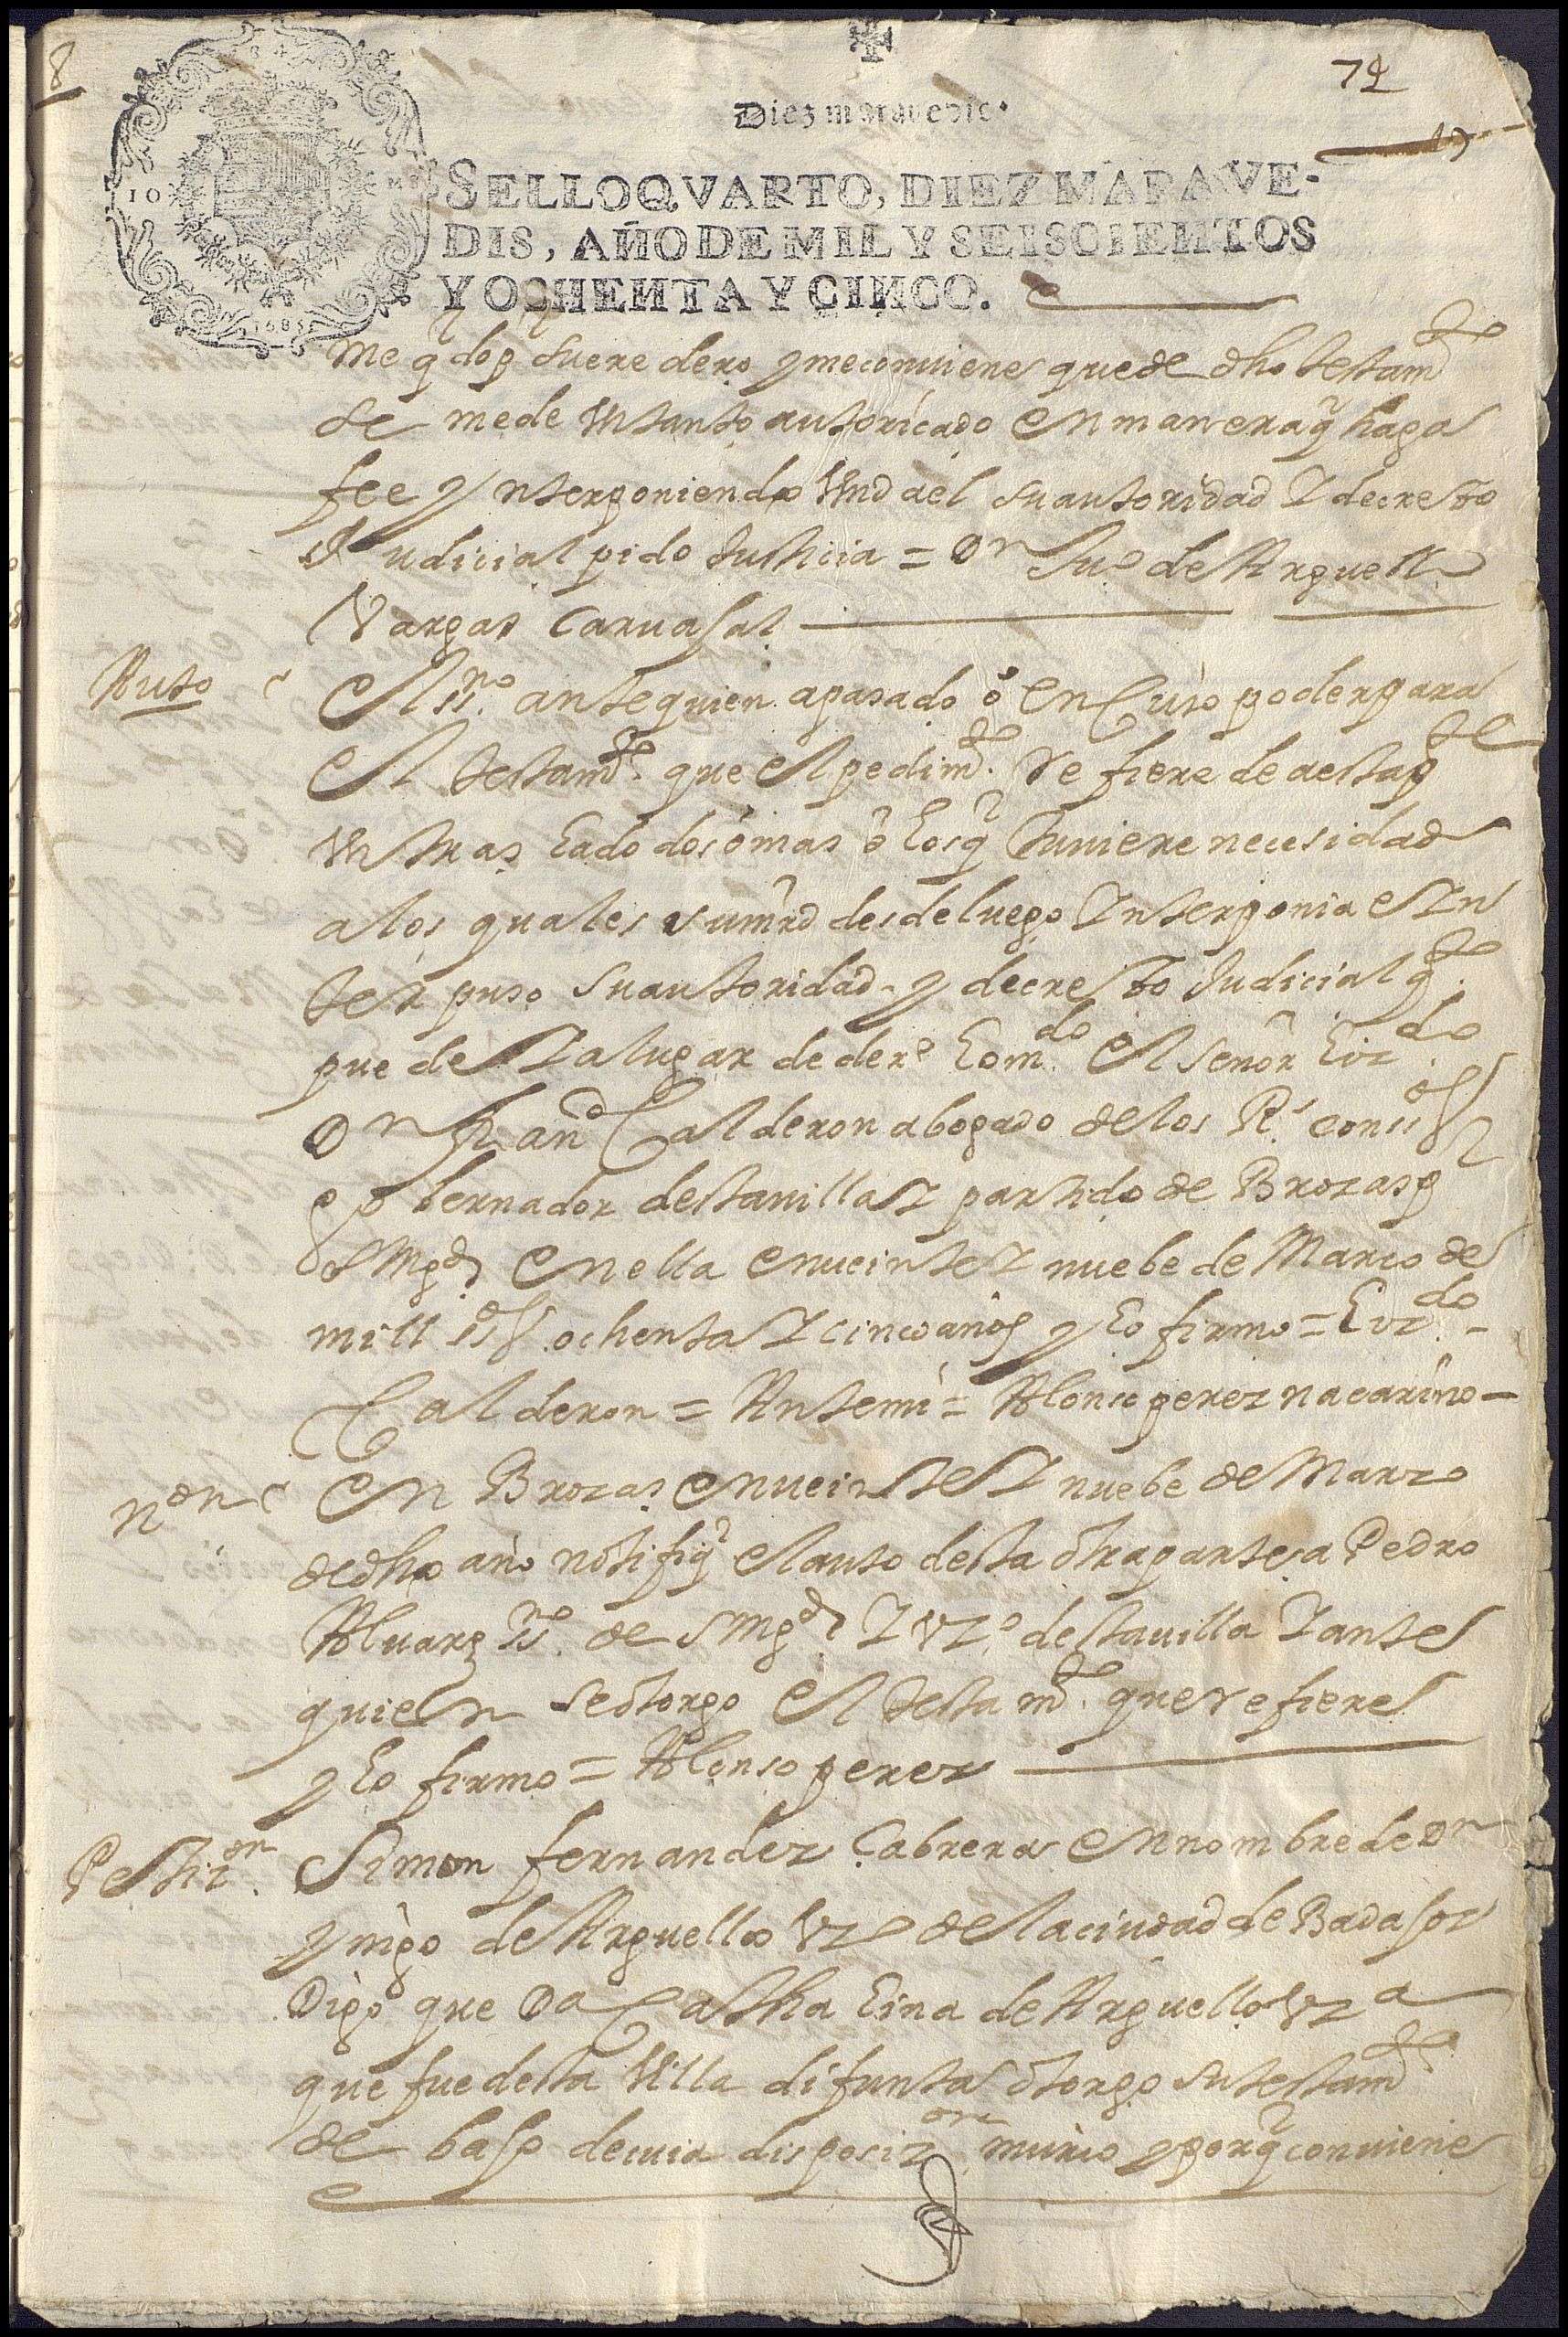 8
74
Diez maravedis.
SELLO QVARTO, DIEZ MARAVE-
DIS, AÑO DE MIL Y SEISCIENTOS
Y OCHENTA Y CINCO.
10
1685
me q̃ dop fuere dero y meconuiene que de dho testamto
se mede Vn tanto autoricado en manera q̃ haga
fee Ynterponiendo Vmd ael su autoridad Y decreto
Judicial pido Justicia = Dn Juo de Arguello
Vargas Caruajal
Auto
El ssno. ante quien a pasado ô en Cuio poder para
El testamto. que el pedimto. refiere de aesta pte
Vn tras lado dos ô mas ô los q̃ tuuiere necesidad
a los quales su mrd desde luego Interponia e In
terpuso su autoridad y decreto Judicial qto.
puede Y a lugar de dero lo mdo. El señor Lizdo.
Dn Frando Calderon abogado de los Rs. conss
gobernador desta uilla Y partido de Brozas p
S Mgd en ella en ueinte Y nuebe de Março de
mill ss ochenta Y cinco años y lo firmo = Lizdo. -
Calderon = Ante mi = Alonso perez nacarino -
non
En Brozas en ueinte Y nuebe de Marzo
de dho año notifiq̃ el auto desta otra parte a Pedro
Aluarz ssno. de S Mgd Y Vzo. desta uilla Y ante
quien se otorgo El testamto. que refiere
y lo firmo = Alonso perez
Petizon.
Simon fernandez Cabrera en nombre de Dn
ynigo de Arguello Vzo de la ciudad de Badajoz
Digo que Da Catha lina de Arguello Vza
que fue desta Villa difunta otorgo su testamto
de bajo de cuia disposizon murio y porq̃ conuiene